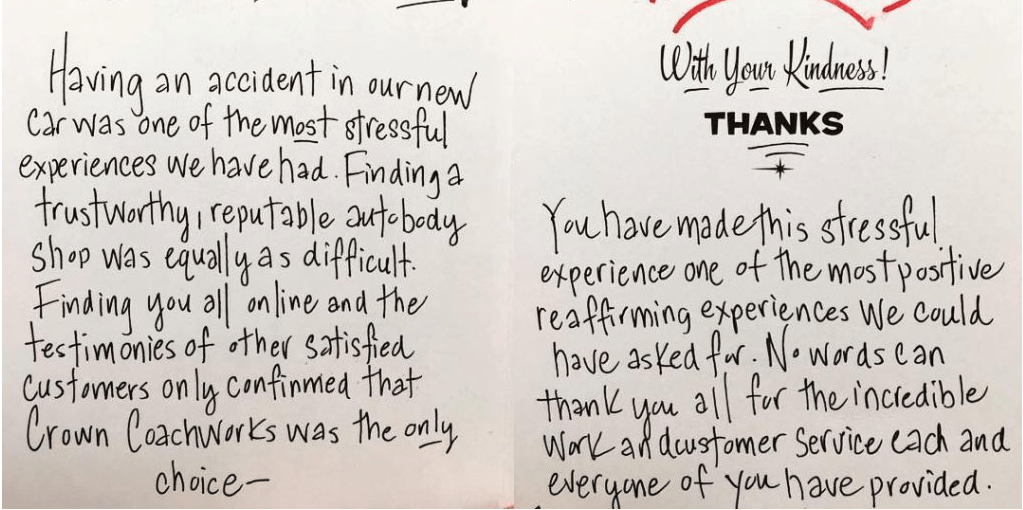 Having an accident in our new
car was one of the most stressful
experiences we have had. Finding a
trustworthy, reputable autobody
shop was equally as difficult.
Finding you all online and the
testimonies of other satisfied
customers only confinmed that
Crown Coachworks was the only
choice—
With Your Kindness!
THANKS
You have made this stressful
experience one of the most positive
reaffirming experiences we could
have asked for. No words can
thank you all for the incredible
work and customer service each and
everyone of you have provided.